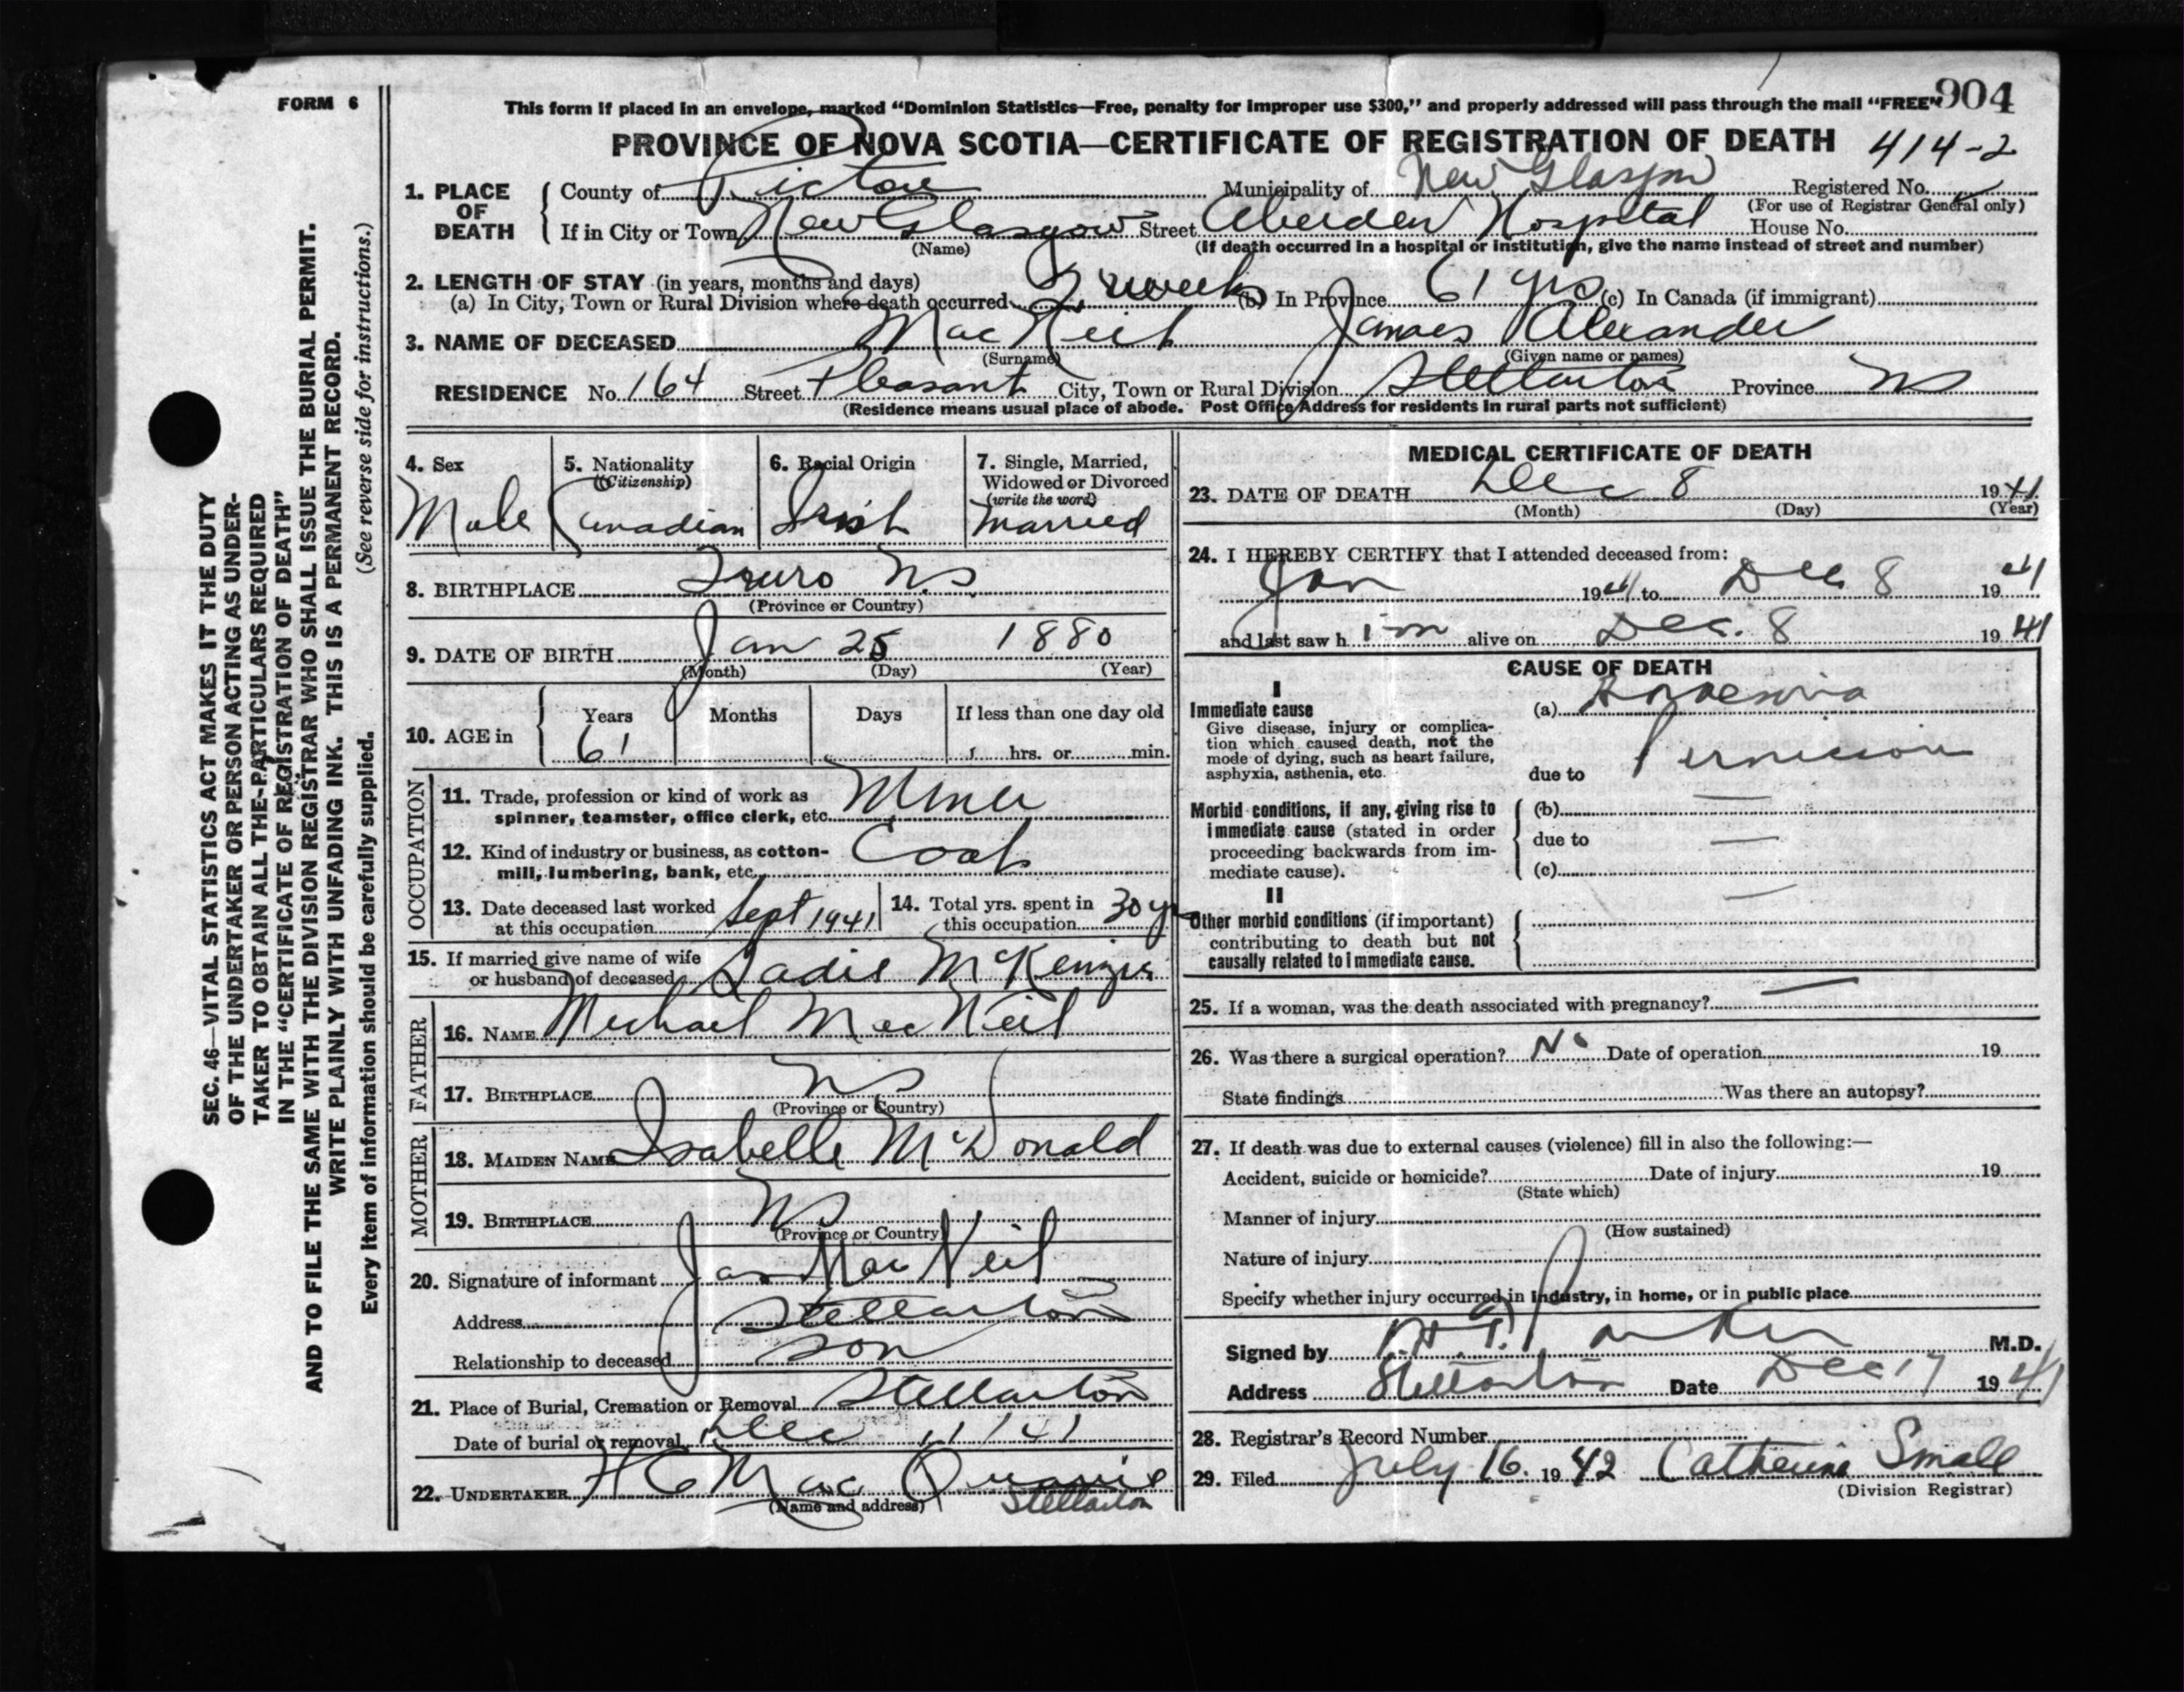 FORM 6
This form if placed in an envelope, marked “Dominion Statistics—Free, penalty for improper use $300,” and properly addressed will pass through the mail “FREE”
904
PROVINCE OF NOVA SCOTIA—CERTIFICATE OF REGISTRATION OF DEATH 414-2
1. PLACE OF DEATH
County of Pictou Municipality of New Glasgow Registered No.
(For use of Registrar General only)
If in City or Town New Glasgow Street Aberdeen Hospital House No.
(Name) (If death occurred in a hospital or institution, give the name instead of street and number)
2. LENGTH OF STAY (in years, months and days)
(a) In City, Town or Rural Division where death occurred weeks (b) In Province 61 yrs (c) In Canada (if immigrant)
3. NAME OF DECEASED MacNeil James Alexander
(Surname) (Given name or names)
RESIDENCE No. 164 Street Pleasant City, Town or Rural Division Stellarton Province NS
(Residence means usual place of abode. Post Office Address for residents in rural parts not sufficient)
4. Sex
Male
5. Nationality
(Citizenship)
Canadian
6. Racial Origin
Irish
7. Single, Married,
Widowed or Divorced
(write the word)
Married
8. BIRTHPLACE Truro N.S
(Province or Country)
9. DATE OF BIRTH Jan 25 1880
(Month) (Day) (Year)
10. AGE in
Years Months Days If less than one day old
61 hrs. or min.
OCCUPATION
11. Trade, profession or kind of work as
spinner, teamster, office clerk, etc. Miner
12. Kind of industry or business, as cotton-
mill, lumbering, bank, etc. Coal
13. Date deceased last worked
at this occupation Sept 1941
14. Total yrs. spent in
this occupation 30 yr
15. If married give name of wife
or husband of deceased Sadie McKenzie
FATHER
16. NAME Michael MacNeil
17. BIRTHPLACE NS
(Province or Country)
MOTHER
18. MAIDEN NAME Isabelle McDonald
19. BIRTHPLACE NS
(Province or Country)
20. Signature of informant Jas MacNeil
Address Stellarton
Relationship to deceased son
21. Place of Burial, Cremation or Removal Stellarton
Date of burial or removal Dec 11/41
22. UNDERTAKER H C MacQuarrie
(Name and address) Stellarton
MEDICAL CERTIFICATE OF DEATH
23. DATE OF DEATH Dec 8 1941
(Month) (Day) (Year)
24. I HEREBY CERTIFY that I attended deceased from:
Jan 1941 to Dec 8 1941
and last saw him alive on Dec. 8 1941
CAUSE OF DEATH
I
Immediate cause
Give disease, injury or complica-
tion which caused death, not the
mode of dying, such as heart failure,
asphyxia, asthenia, etc.
(a) Anaemia
due to Pernicious
Morbid conditions, if any, giving rise to
immediate cause (stated in order
proceeding backwards from im-
mediate cause).
(b) —
due to —
(c)
II
Other morbid conditions (if important)
contributing to death but not
causally related to immediate cause.
—
25. If a woman, was the death associated with pregnancy? —
26. Was there a surgical operation? No Date of operation 19
State findings Was there an autopsy?
27. If death was due to external causes (violence) fill in also the following:—
Accident, suicide or homicide? Date of injury 19
(State which)
Manner of injury
(How sustained)
Nature of injury
Specify whether injury occurred in industry, in home, or in public place
Signed by M.D.
Address Stellarton Date Dec 17 1941
28. Registrar's Record Number
29. Filed July 16. 1942 Catherine Small
(Division Registrar)
SEC. 46—VITAL STATISTICS ACT MAKES IT THE DUTY
OF THE UNDERTAKER OR PERSON ACTING AS UNDER-
TAKER TO OBTAIN ALL THE PARTICULARS REQUIRED
IN THE “CERTIFICATE OF REGISTRATION OF DEATH”
AND TO FILE THE SAME WITH THE DIVISION REGISTRAR WHO SHALL ISSUE THE BURIAL PERMIT.
WRITE PLAINLY WITH UNFADING INK. THIS IS A PERMANENT RECORD.
(See reverse side for instructions.)
Every item of information should be carefully supplied.